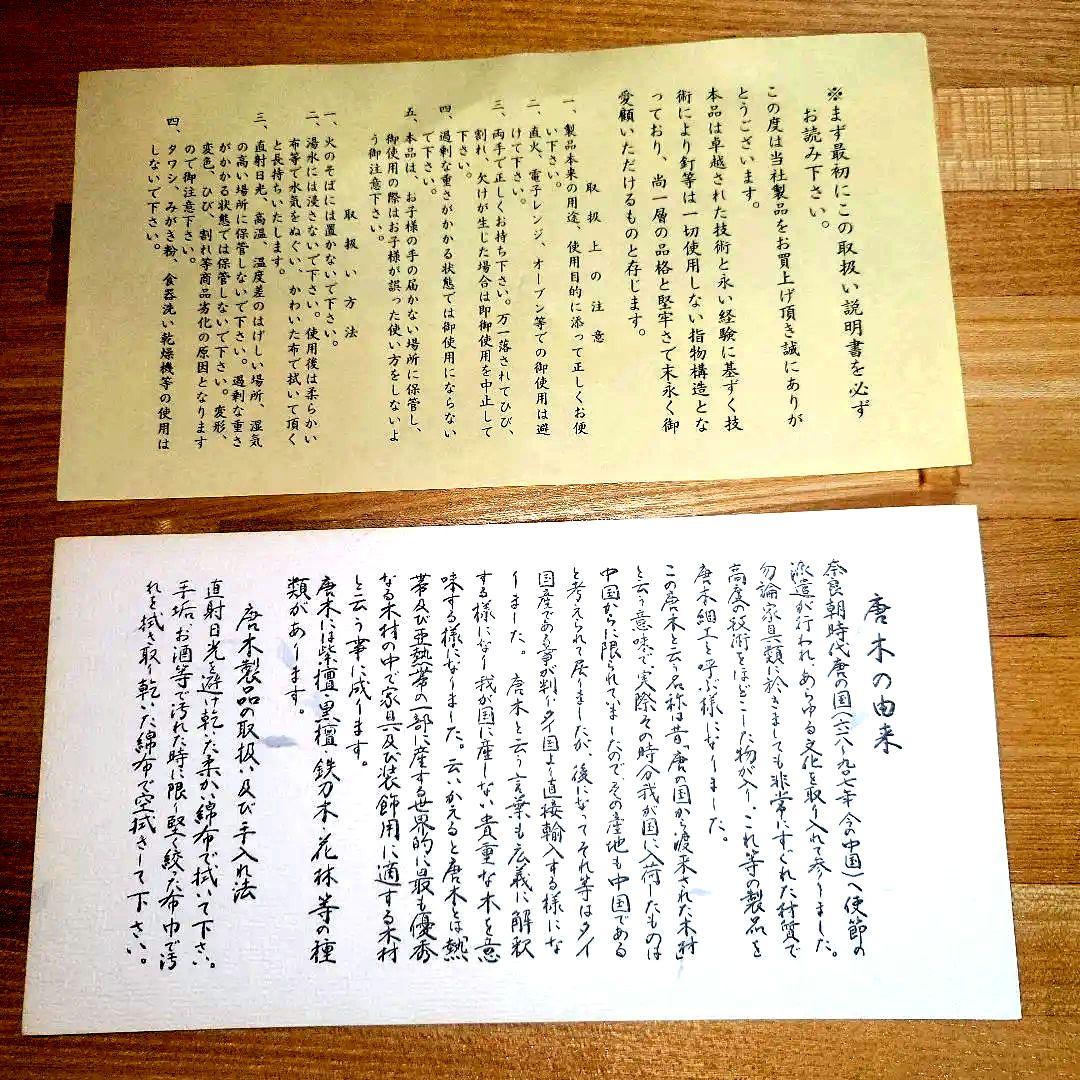 ※まず最初にこの取扱い説明書を必ず
お読み下さい。
この度は当社製品をお買上げ頂き誠にありが
とうございます。
本品は卓越された技術と永い経験に基ずく技
術により釘等は一切使用しない指物構造とな
っており、尚一層の品格と堅牢さで末永く御
愛顧いただけるものと存じます。
取扱上の注意
一、製品本来の用途、使用目的に添って正しくお使
い下さい。
二、直火、電子レンジ、オーブン等での御使用は避
けて下さい。
三、両手で正しくお持ち下さい。万一落されてひび、
割れ、欠けが生じた場合は即御使用を中止して
下さい。
四、過剰な重さがかかる状態では御使用にならない
で下さい。
五、本品は、お子様の手の届かない場所に保管し、
御使用の際はお子様が誤った使い方をしないよ
う御注意下さい。
取扱い方法
一、火のそばには置かないで下さい。
二、湯水には浸さないで下さい。使用後は柔らかい
布等で水気をぬぐい、かわいた布で拭いて頂く
と長持ちいたします。
三、直射日光、高温、温度差のはげしい場所、湿気
の高い場所に保管しないで下さい。過剰な重さ
がかかる状態では保管しないで下さい。変形、
変色、ひび、割れ等商品劣化の原因となります
ので御注意下さい。
四、タワシ、みがき粉、食器洗い乾燥機等の使用は
しないで下さい。
唐木の由来
奈良朝時代唐の国(六一八〜九〇七年今の中国)へ使節の
派遣が行われ、あらゆる文化を取り入れて参りました。
勿論家具類に於きましても非常にすぐれた材質で
高度の技術をほどこした物が入り、これ等の製品を
唐木細工と呼ぶ様になりました。
この唐木と云う名称は昔「唐の国から渡来された木材」
と云う意味で、実際その時分我が国に入荷したものは
中国からに限られていましたのでその産地も中国である
と考えられて居りましたが、後になってそれ等はタイ
国産である事が判りタイ国より直接輸入する様にな
りました。唐木と云う言葉も広義に解釈
する様になり我が国に産しない貴重な木を意
味する様になりました。云いかえると唐木とは熱
帯及び亜熱帯の一部に産する世界的に最も優秀
なる木材の中で家具及び装飾用に適する木材
と云う事に成ります。
唐木には紫檀・黒檀・鉄刀木・花林等の種
類があります。
唐木製品の取扱い及び手入れ法
直射日光を避け乾いた柔かい綿布で拭いて下さい。
手垢、お酒等で汚れた時に限り堅く絞った布巾で汚
れを拭き取り乾いた綿布で空拭きして下さい。